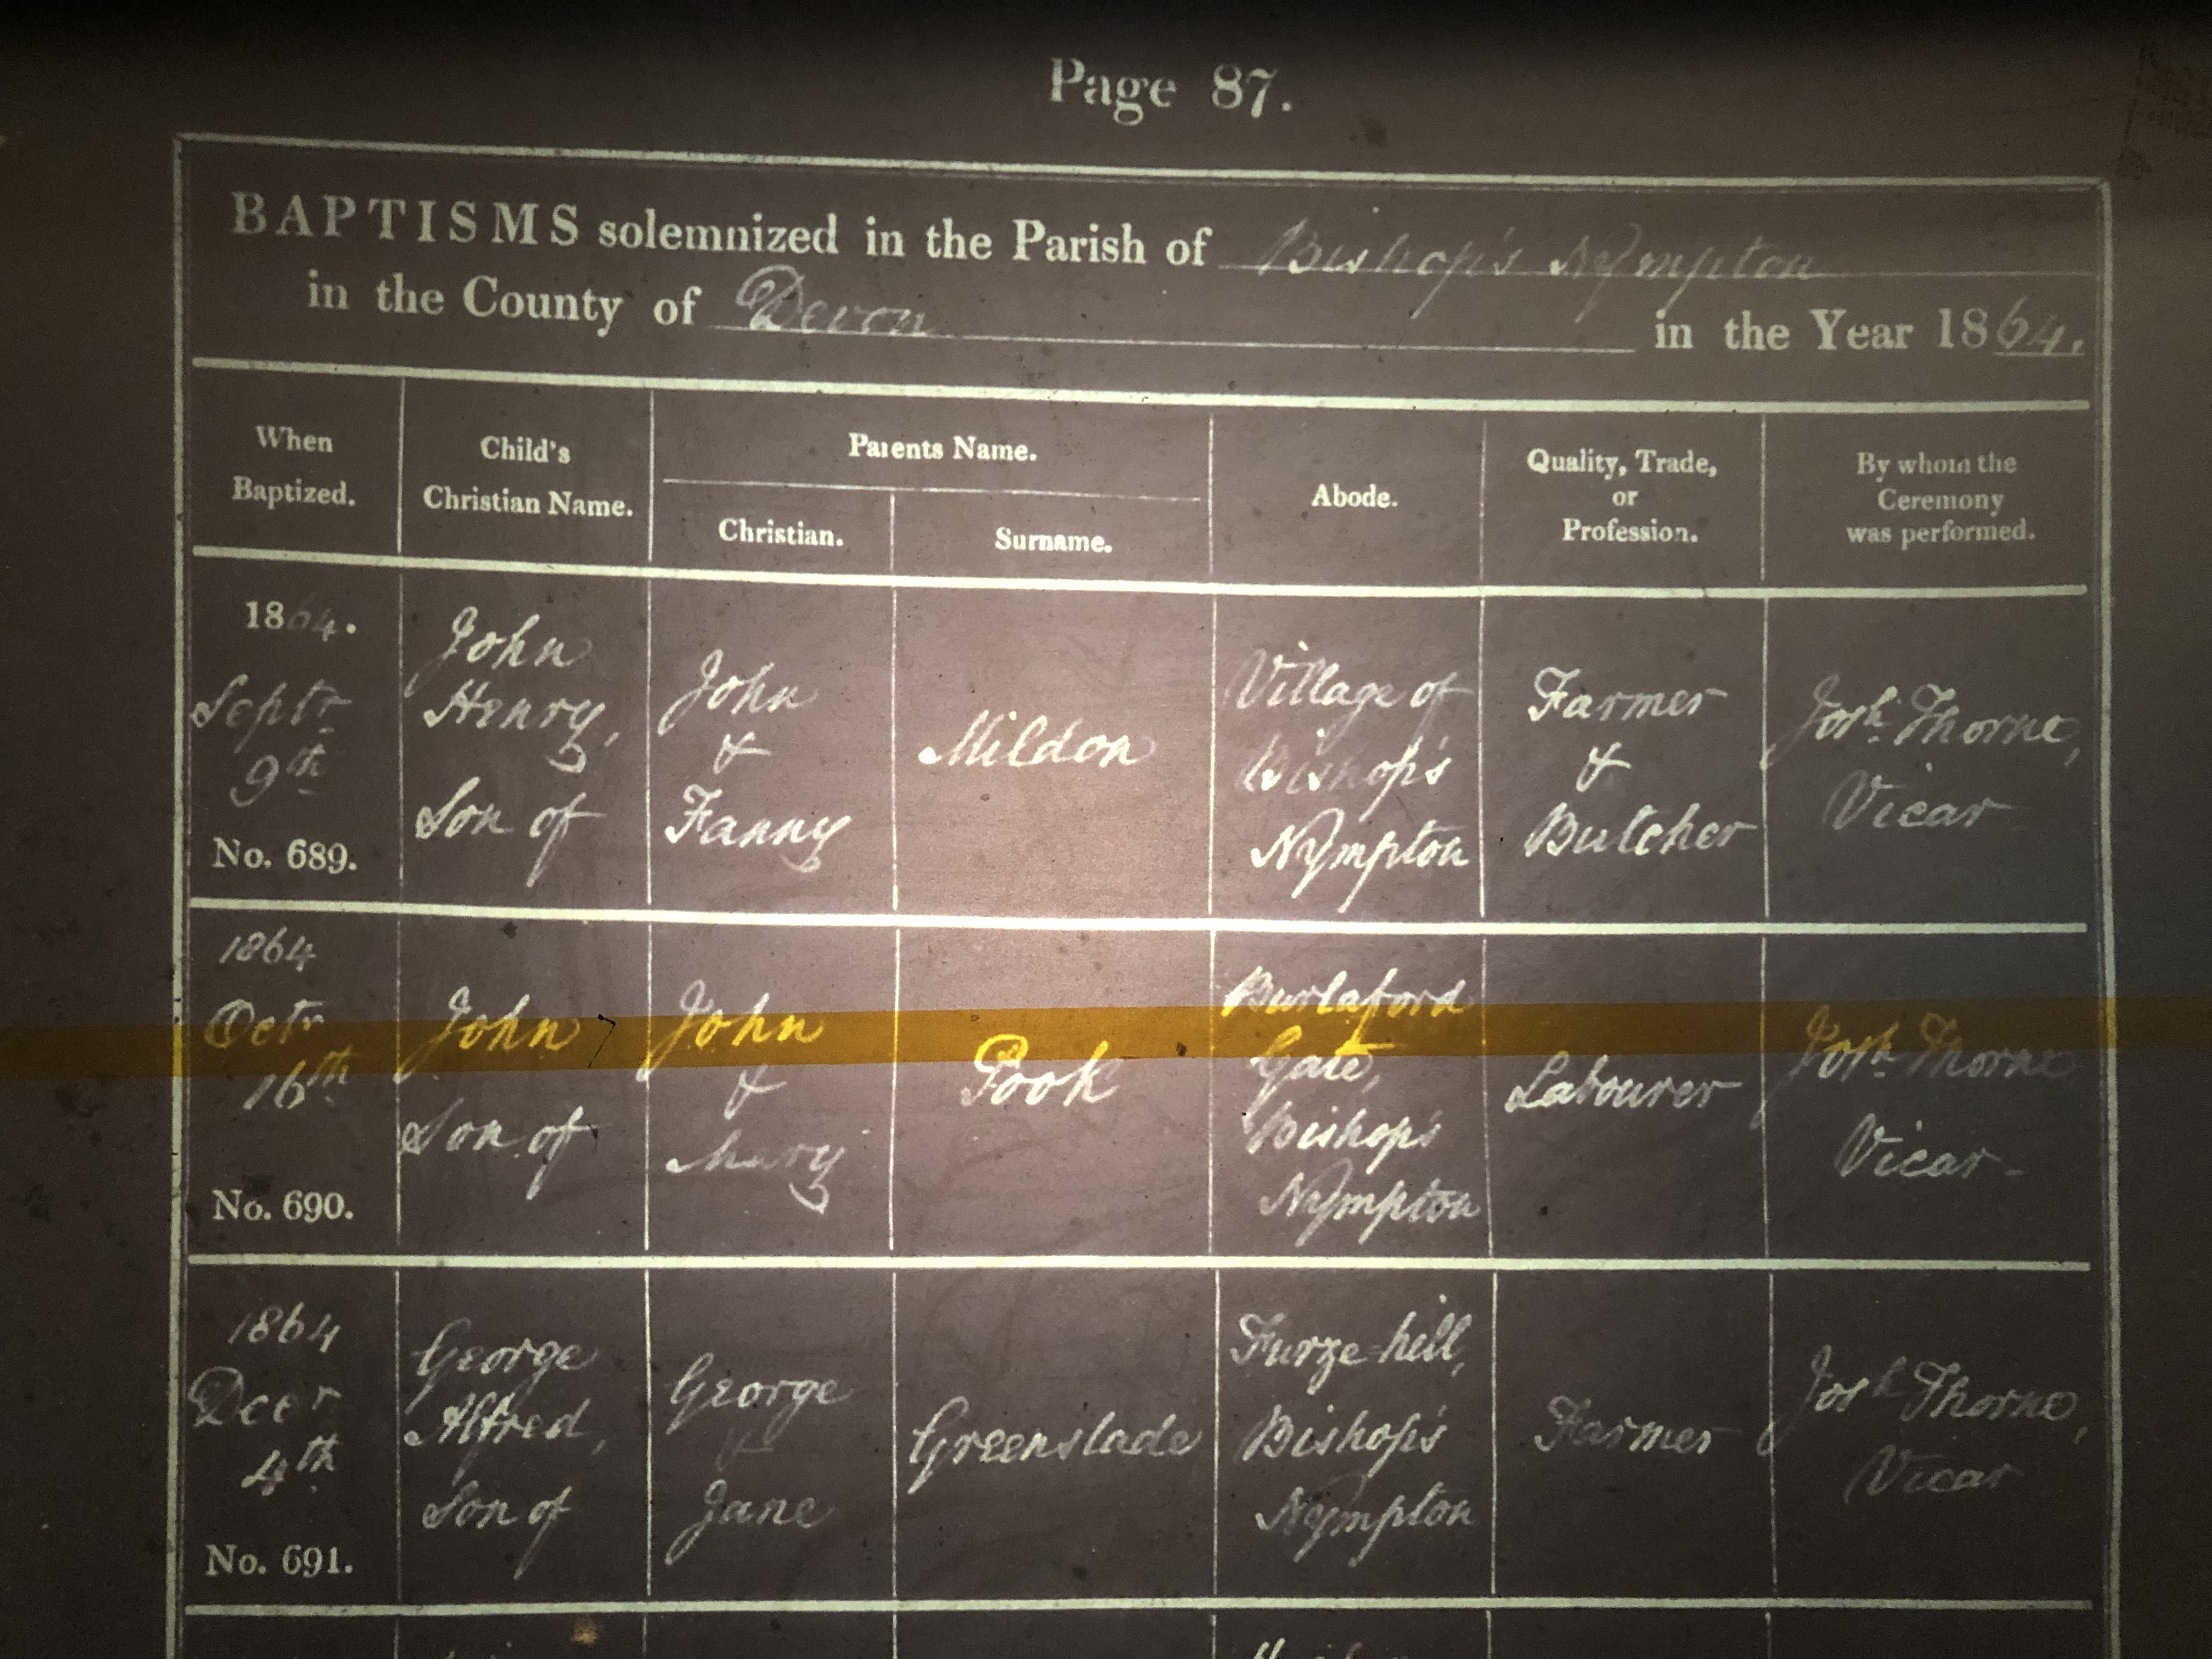 Page 87.
BAPTISMS solemnized in the Parish of Bishop's Nympton
in the County of Devon in the Year 1864.
When Baptized.
Child's Christian Name.
Parents Name.
Christian.
Surname.
Abode.
Quality, Trade, or Profession.
By whom the Ceremony was performed.
1864.
Septr
9th
No. 689.
John
Henry,
Son of
John
&
Fanny
Mildon
Village of
Bishop's
Nympton
Farmer
&
Butcher
Josh. Thorne,
Vicar
1864
Octr
16th
No. 690.
John,
Son of
John
&
Mary
Pook
Burlaford
Gate,
Bishop's
Nympton
Labourer
Josh. Thorne
Vicar-
1864
Decr
4th
No. 691.
George
Alfred,
Son of
George
&
Jane
Greenslade
Furze-hill,
Bishop's
Nympton
Farmer
Josh Thorne,
Vicar